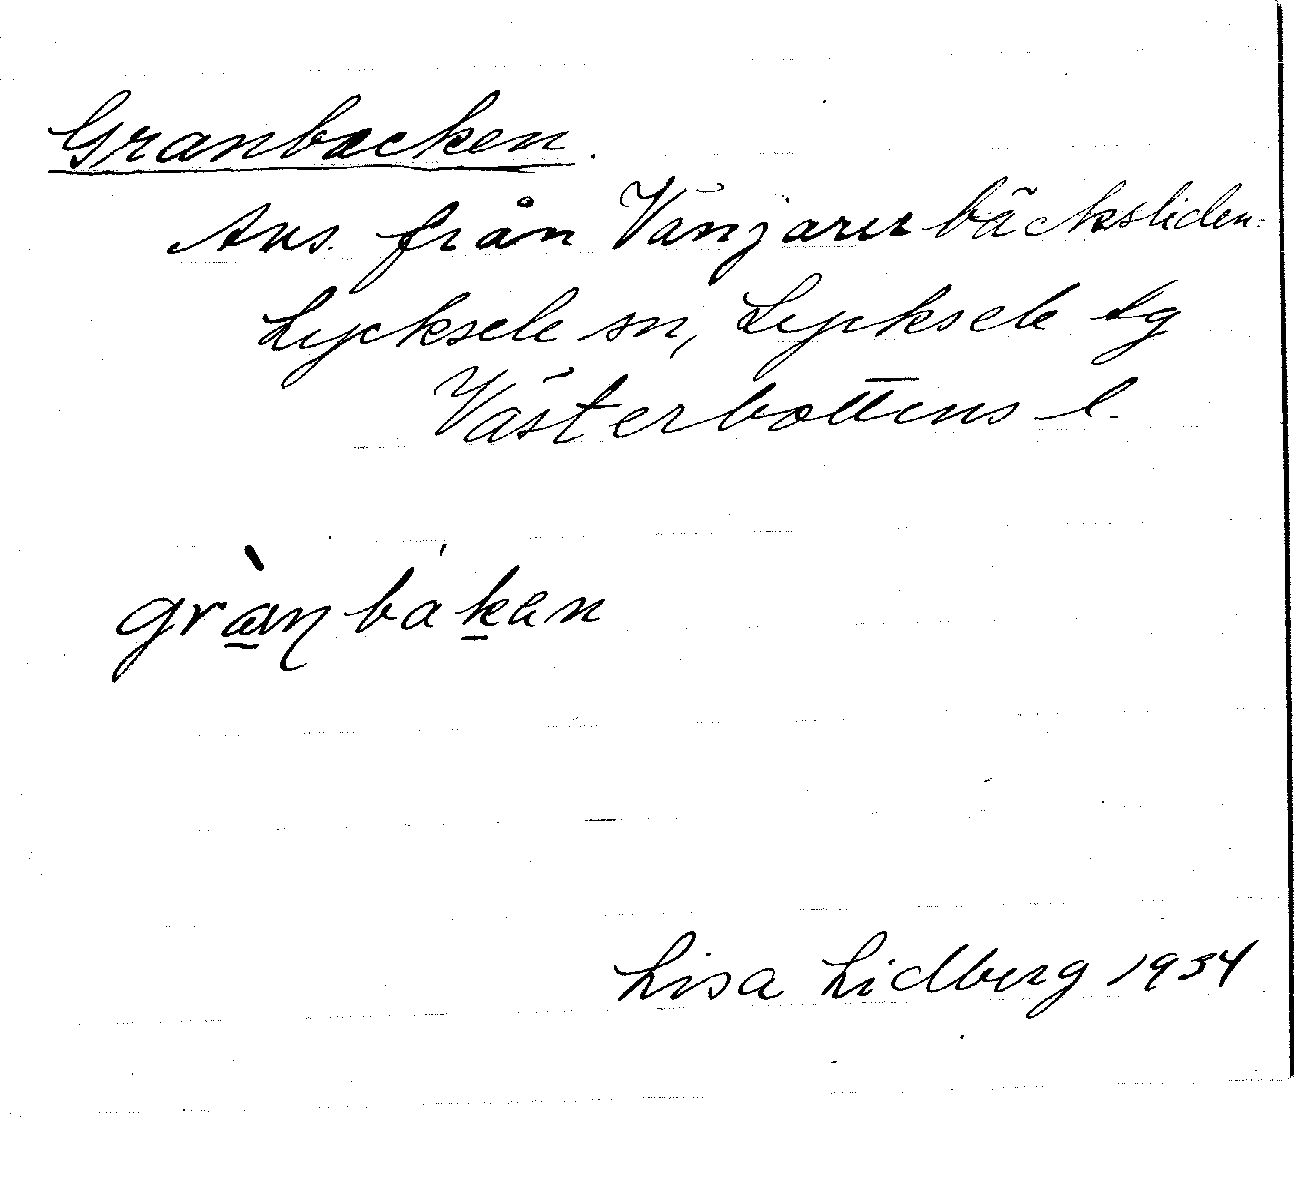 Granbacken.
Avs. från Vänjaurbäcksliden
Lycksele sn, Lycksele tg
Västerbottens l.
gràn bakan
Lisa Lidberg 1934